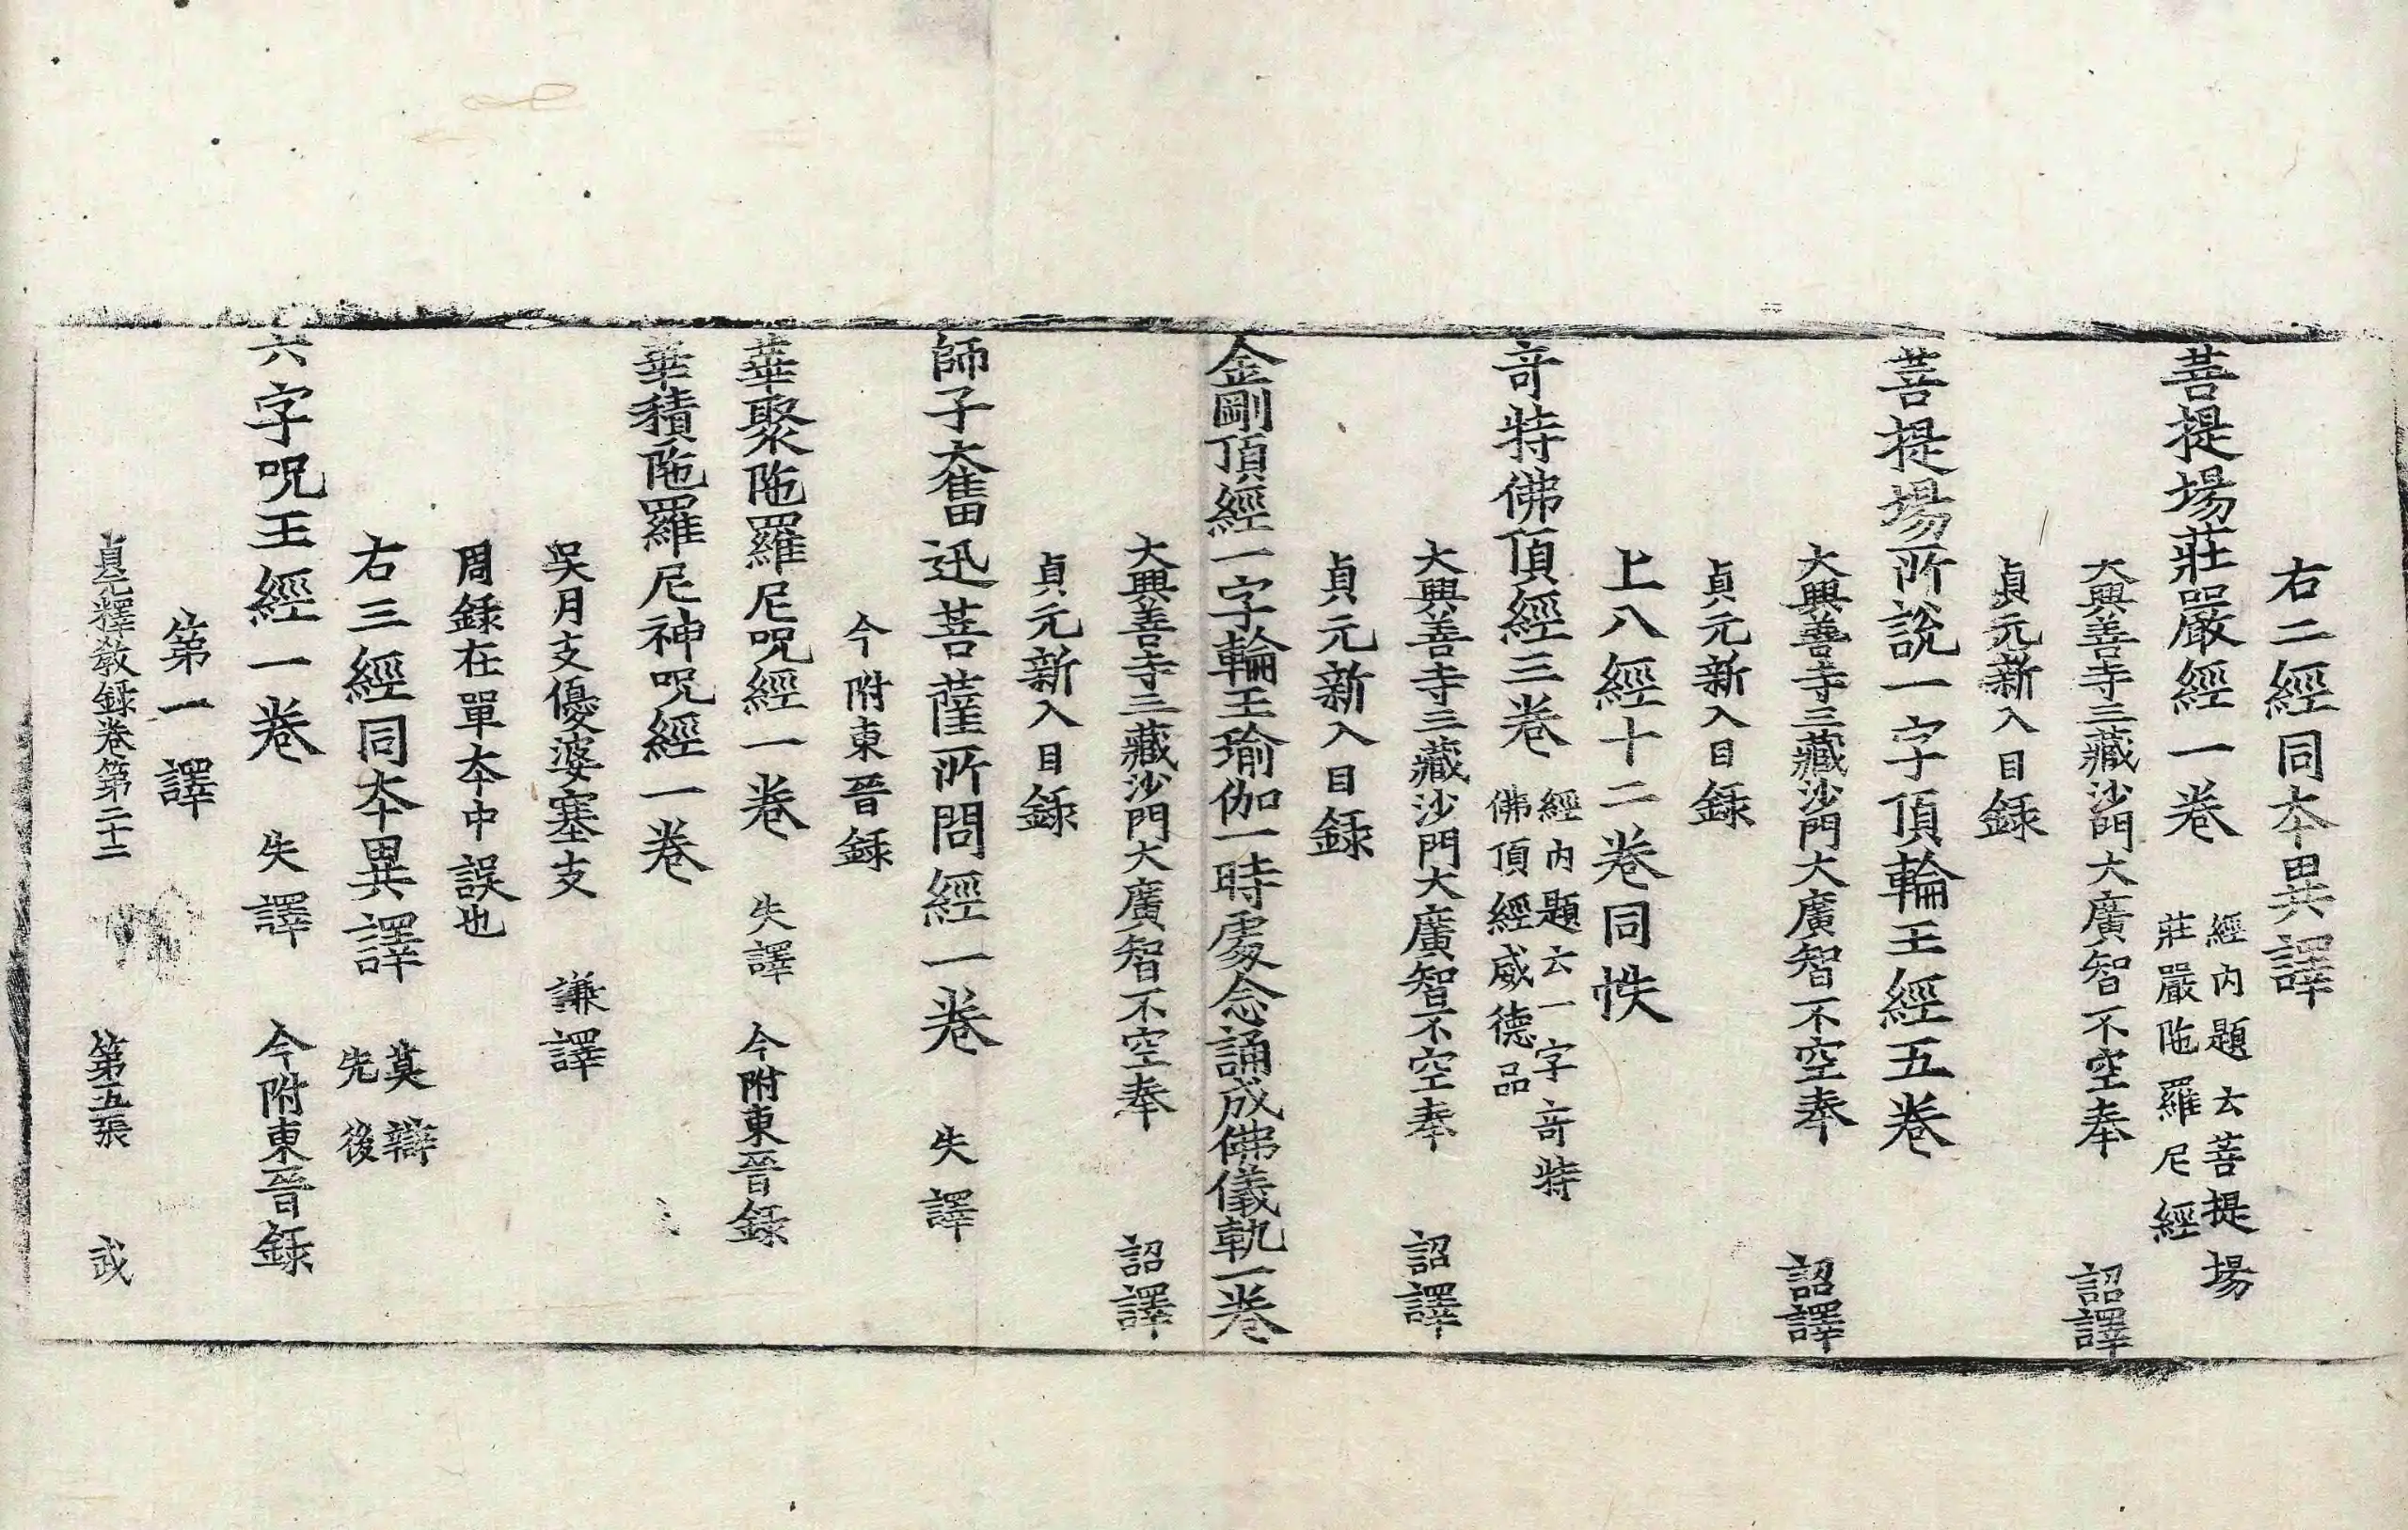 右二經同夲異譯
菩提場莊嚴經一卷 經內題云菩提場
莊嚴陁羅尼經
大興善寺三藏沙門大廣智不空奉 詔譯
貞元新入目録
菩提場所說一字頂輪王經五卷
大興善寺三藏沙門大廣智不空奉 詔譯
貞元新入目録
上八經十二卷同帙
竒特佛頂經三卷 經內題云一字竒特
佛頂經威德品
大興善寺三藏沙門大廣智不空奉 詔譯
貞元新入目録
金剛頂經一字輪王瑜伽一時處念誦成佛儀軌一卷
大興善寺三藏沙門大廣智不空奉 詔譯
貞元新入目録
師子奮迅菩薩所問經一卷 失譯
今附東晉録
華聚陁羅尼呪經一卷 失譯 今附東晉録
華積陁羅尼神呪經一卷
吳月支優婆塞支 謙譯
周録在單夲中誤也
右三經同夲異譯 莫辯
先後
六字呪王經一卷 失譯 今附東晉録
第一譯
貞元釋教録卷第二十二 第五張 武